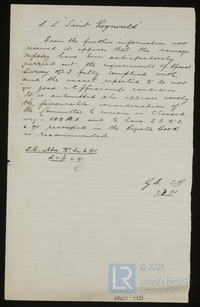 S. S. "Saint Rognwald"
From the further information now
received it appears that the damage
repairs have been satisfactorily
carried out, the requirements of Special
Survey No 3 fully complied with
and the vessel reported to be now
in good & efficient condition.
It is submitted she appears worthy
the favourable consideration of
the Committee to remain as Classed
viz:- 100 A.1. and to have S.S. No 3.
6.91 recorded in the Register Book
as recommended
S.S. Abn. No 3 - 6.91
6.91
91
© 2021
Lloyd's Register
Foundation